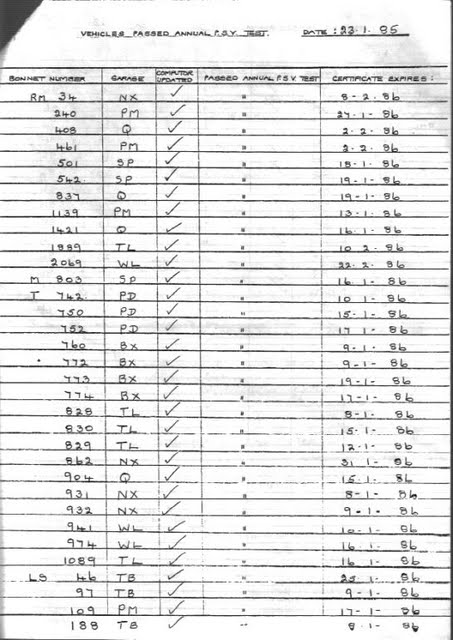 VEHICLES PASSED ANNUAL P.S.V. TEST. DATE : 23.1.85
BONNET NUMBER GARAGE COMPUTOR UPDATED PASSED ANNUAL P.S.V. TEST CERTIFICATE EXPIRES :
RM 34 NX ✓ " 8-2.86
240 PM ✓ " 27-1-86
408 Q ✓ " 2.2.86
461 PM ✓ " 2.2.86
501 SP ✓ " 18-1-86
542 SP ✓ " 19-1-86
837 Q ✓ " 19-1-86
1139 PM ✓ " 13-1-86
1421 Q ✓ " 16.1-86
1889 TL ✓ " 10 2.86
2069 WL ✓ " 22.2.86
M 803 SP ✓ " 16 1-86
T 742 PD ✓ " 10 1-86
750 PD ✓ " 15-1-86
752 PD ✓ " 17 1-86
760 BX ✓ " 9-1-86
772 BX ✓ " 9-1-86
773 BX ✓ " 19-1-86
774 BX ✓ " 17-1-86
828 TL ✓ " 8-1-86
830 TL ✓ " 15.1-86
829 TL ✓ " 12.1-86
862 NX ✓ " 31 1-86
904 Q ✓ " 15.1.86
931 NX ✓ " 8-1-86
932 NX ✓ " 9-1-86
941 WL ✓ " 10.1-86
974 WL ✓ " 16 1-86
1089 TL ✓ " 16 1-86
LS 46 TB ✓ " 1-86
97 TB ✓ " 9-1-86
109 PM ✓ " 17-1-86
188 TB ✓ " 8.1-86